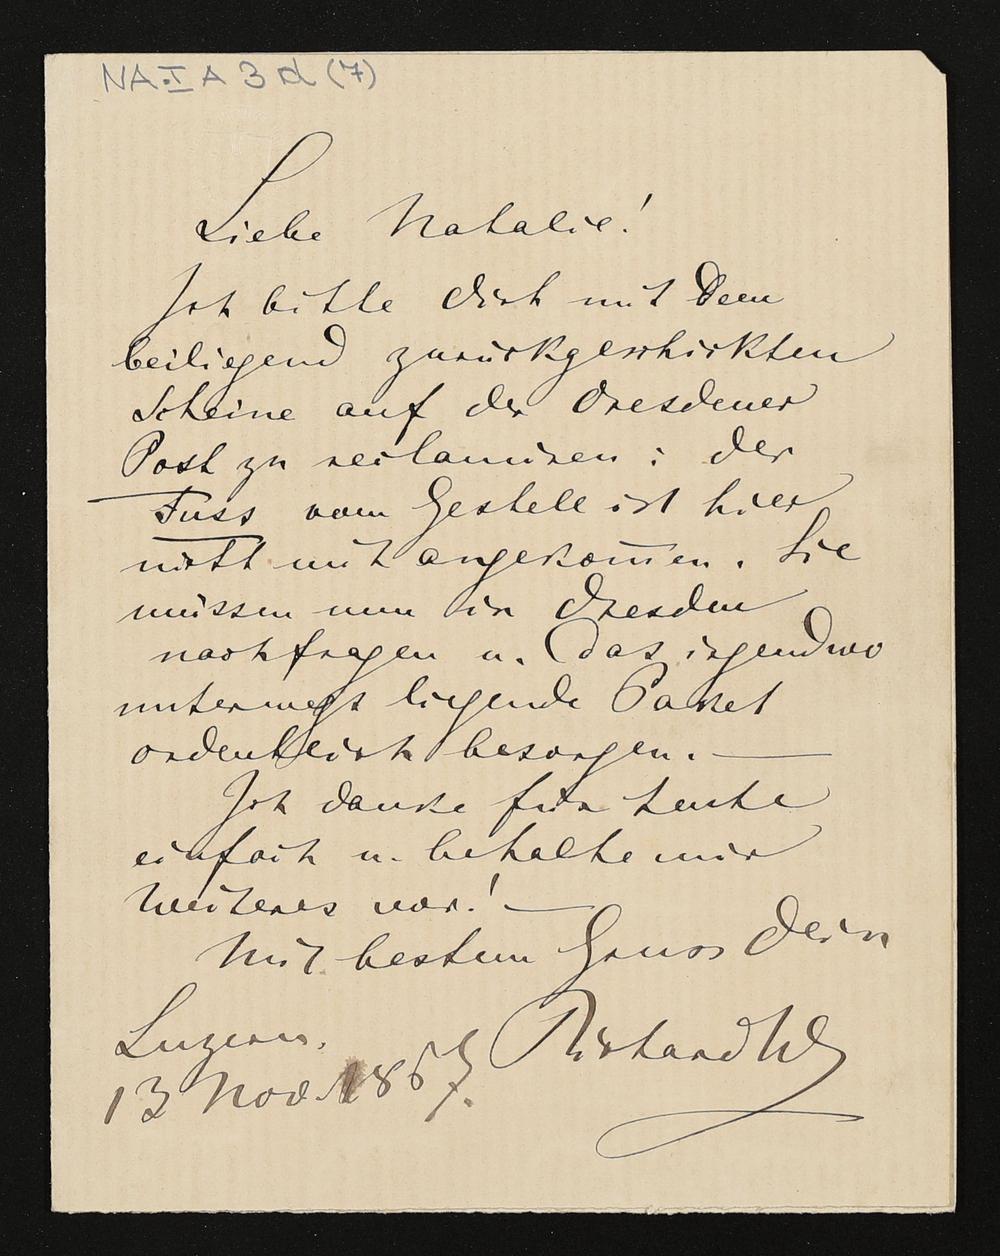 NA I A 3 d (7)
Liebe Natalie!
Ich bitte dich mit dem
beiliegend zurückgeschickten
Scheine auf der Dresdener
Post zu reclamiren: der
Fuss vom Gestell ist hier
nicht mit angekom̅en. Sie
müssen nun in Dresden
nachfragen u. das irgendwo
unterwegs liegende Packet
ordentlich besorgen. —
Ich danke für heute
einfach u. behalte mir
Weiteres vor! —
Mit bestem Gruss Dein
Luzern. Richard W
13 Nov. 1867.